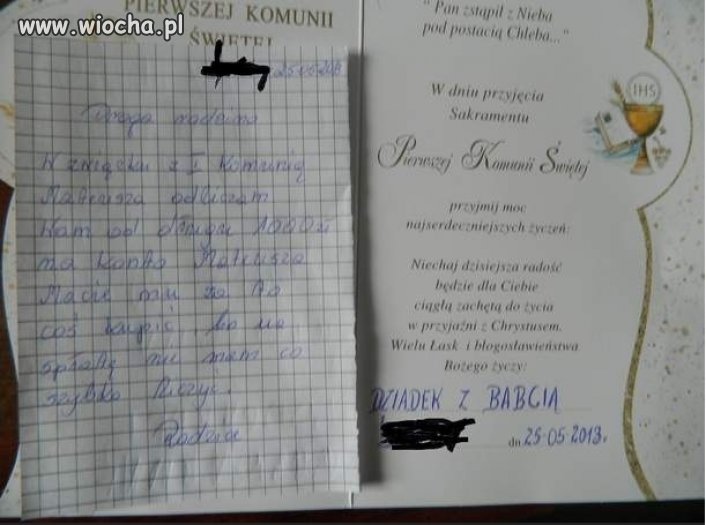 www.wiocha.pl
PIERWSZEJ KOMUNII
ŚWIĘTEJ
25.05.2013
Droga rodzina
W związku z I Komunią
Mateusza odliczam
Wam od długu 1000 zł
na konto Mateusza
Macie mu za to
coś kupić, bo na
spłatę nie mam co
szybko liczyć.
Rodzice
" Pan zstąpił z Nieba
pod postacią Chleba..."
IHS
W dniu przyjęcia
Sakramentu
Pierwszej Komunii Świętej
przyjmij moc
najserdeczniejszych życzeń:
Niechaj dzisiejsza radość
będzie dla Ciebie
ciągłą zachętą do życia
w przyjaźni z Chrystusem.
Wielu Łask i błogosławieństwa
Bożego życzy:
DZIADEK Z BABCIĄ
dn 25-05-2013r.